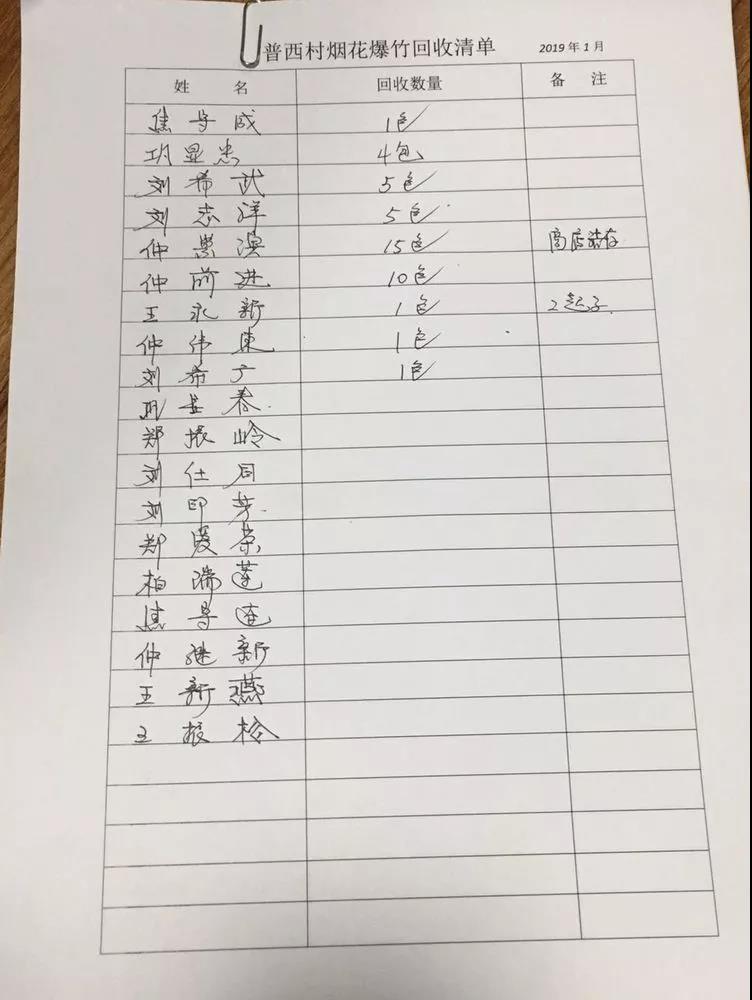 普西村烟花爆竹回收清单 2019年1月
姓 名 回收数量 备 注
焦导成 1包
巩显忠 4包
刘希武 5包
刘志洋 5包
仲崇溟 15包 商店装存
仲前进 10包
王永新 1包 2起子
仲伟东 1包
刘希广 1包
巩春
郑振岭
刘仕同
刘印芳
郑爱荣
柏瑞莲
焦导连
仲继新
王新燕
王振松